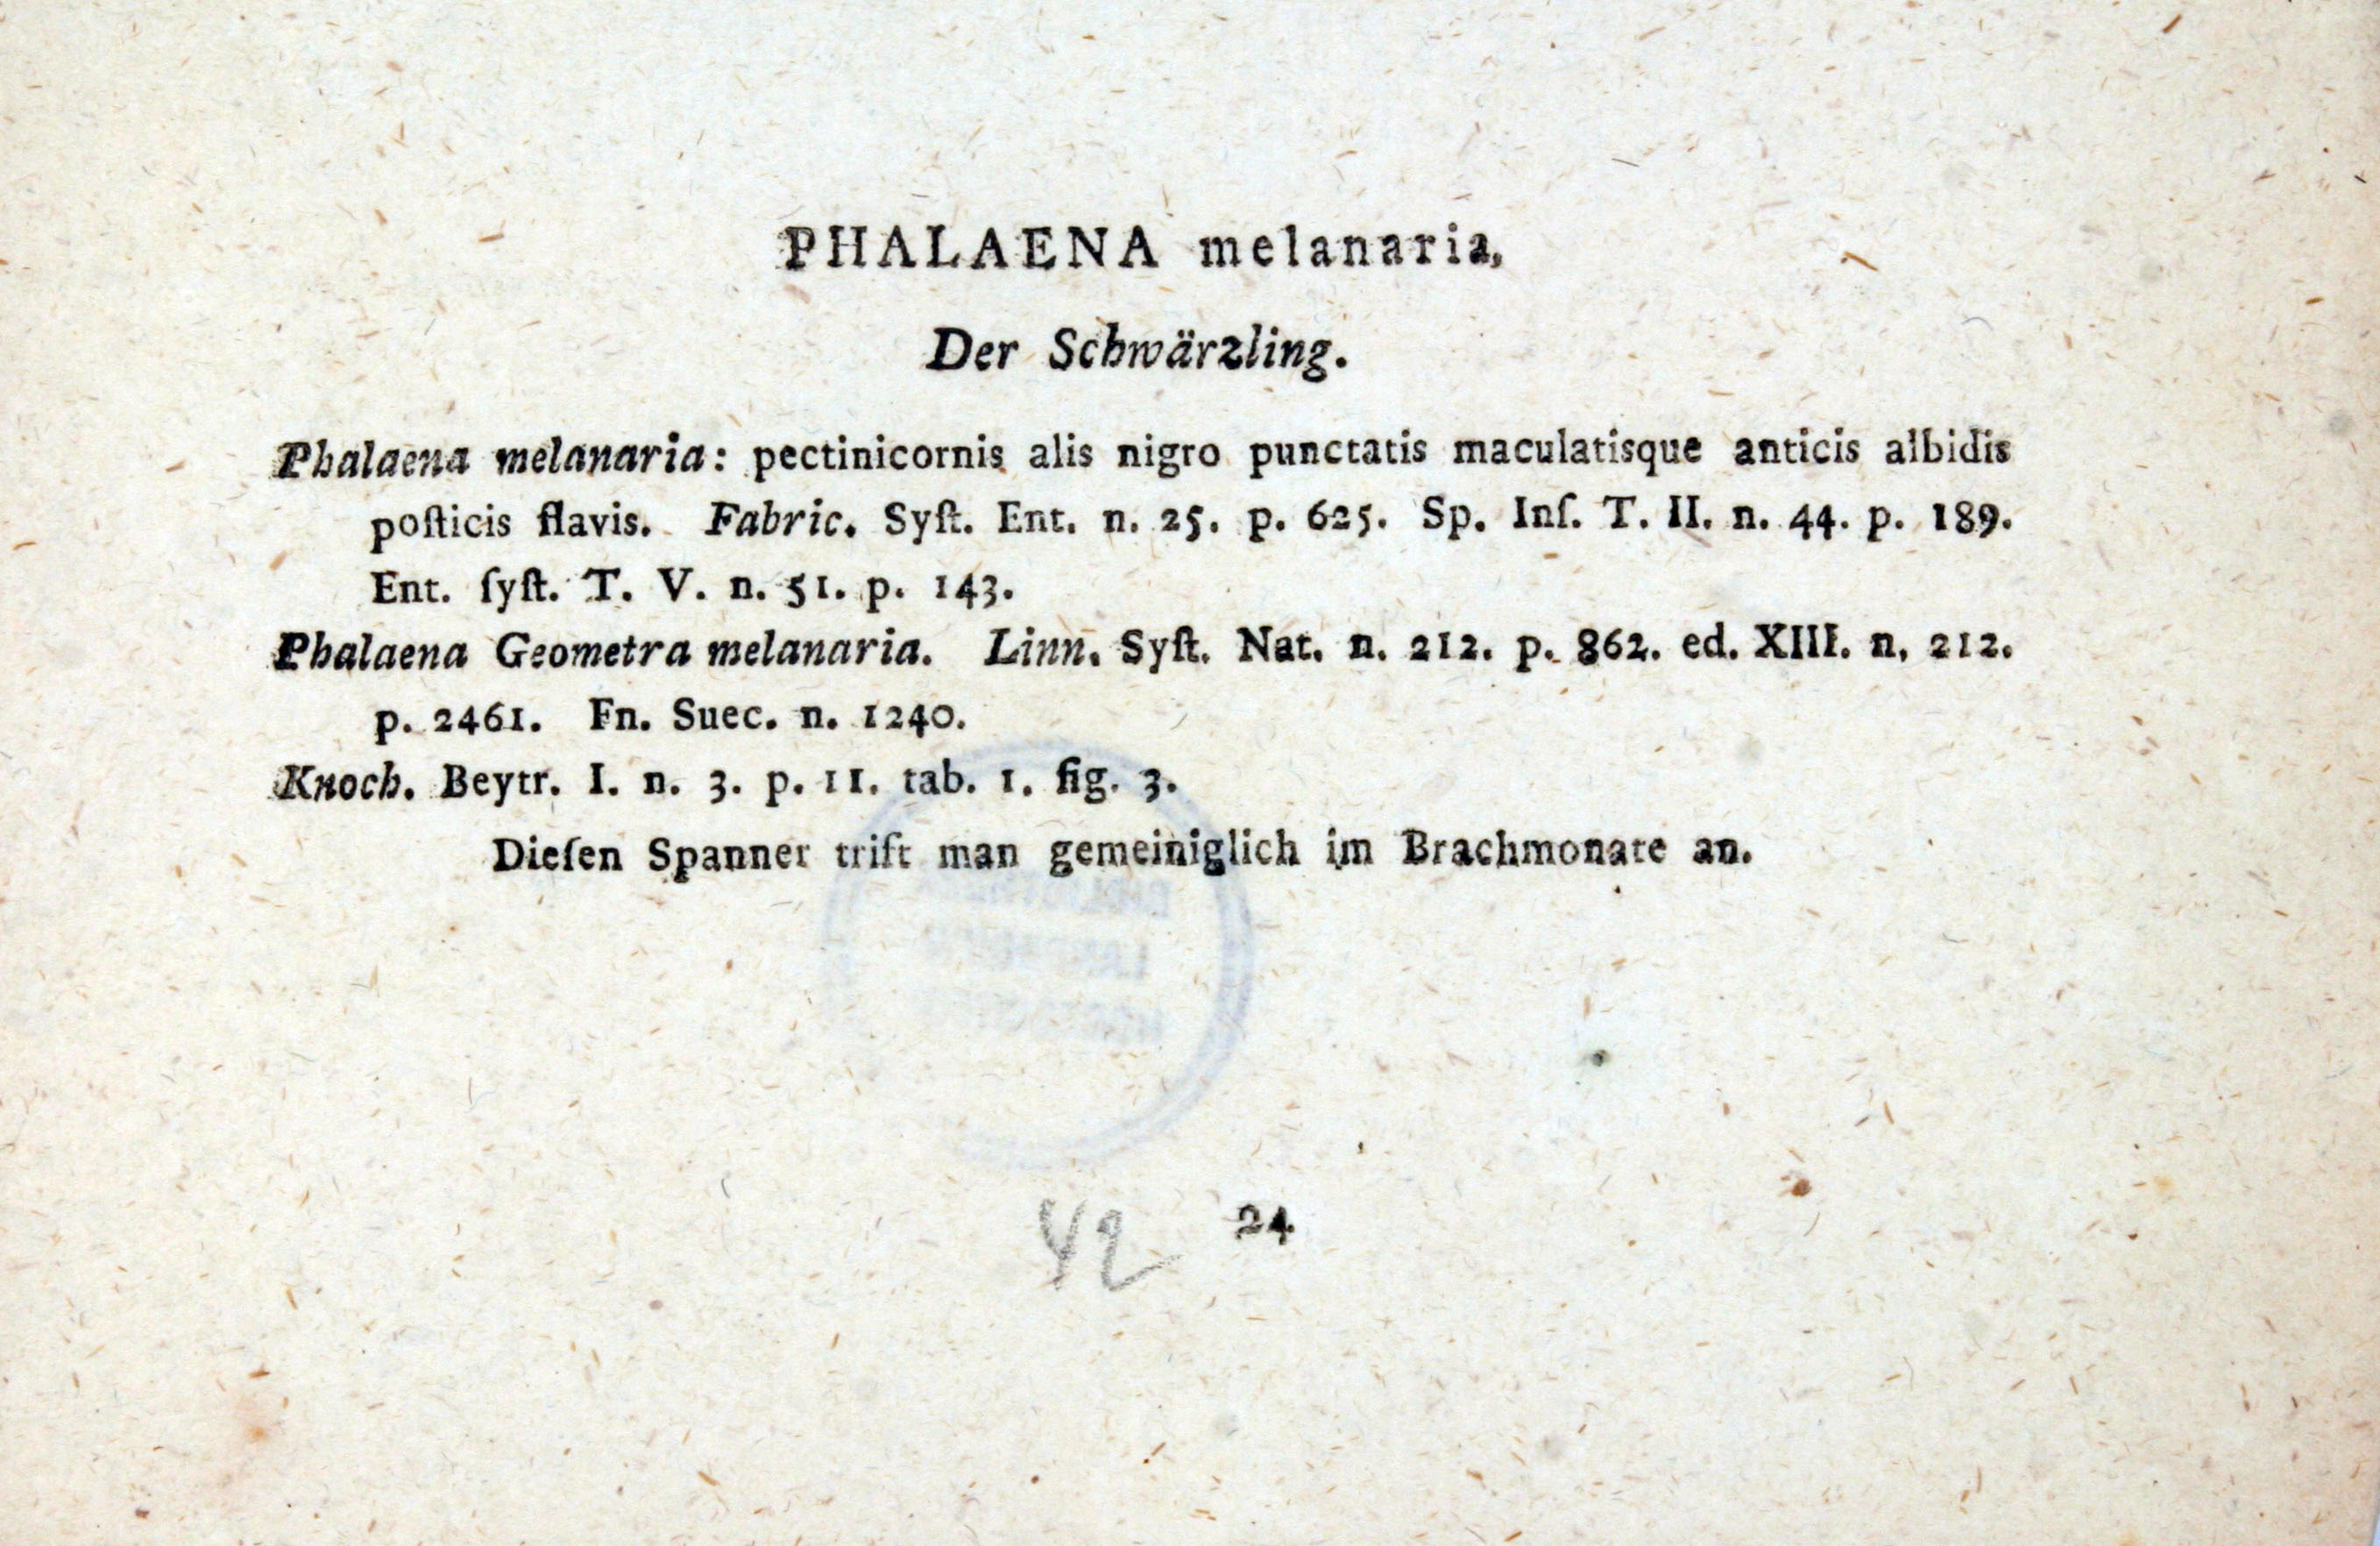 PHALAENA melanaria,
Der Schwärzling.
Phalaena melanaria: pectinicornis alis nigro punctatis maculatisque anticis albidis
poſticis flavis. Fabric. Syſt. Ent. n. 25. p. 625. Sp. Inſ. T. II. n. 44. p. 189.
Ent. ſyſt. T. V. n. 51. p. 143.
Phalaena Geometra melanaria. Linn. Syſt. Nat. n. 212. p. 862. ed. XIII. n. 212.
p. 2461. Fn. Suec. n. 1240.
Knoch. Beytr. I. n. 3. p. 11. tab. 1. fig. 3.
Dieſen Spanner trift man gemeiniglich im Brachmonate an.
42 24